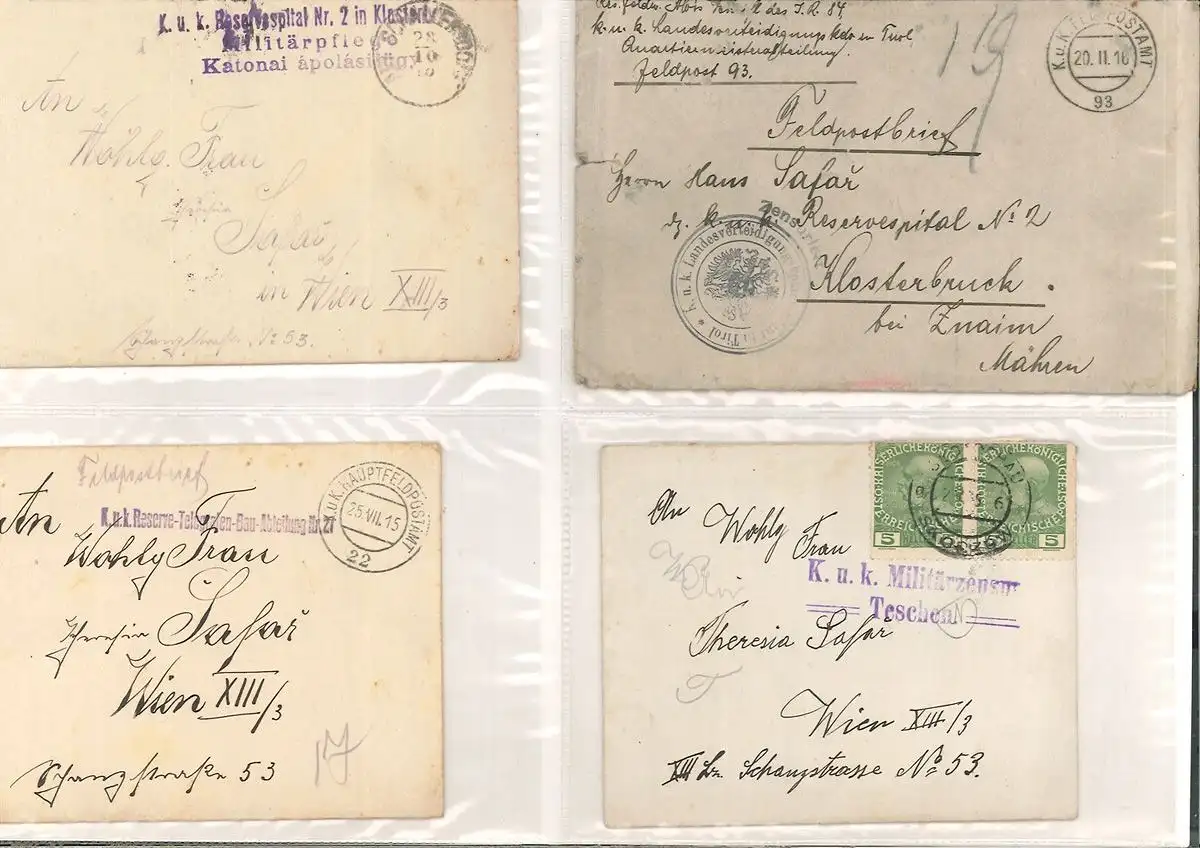 K. u. k. Reservespital Nr. 2 in Klosterb
Militärpfle
Katonai ápolási ügy
28
10
An
Wohlg. Frau
Theresia
Safař
in Wien XIII/3
Schanzstraße No 53.
k. u. k. Landesverteidigungskdo in Tirol
Quartiermeisterabteilung.
Feldpost 93.
K.u.K. FELDPOSTAMT
20. II. 16
93
19
Feldpostbrief
Herrn Hans Safař
dz. k. u. k. Reservespital No 2
Zensuriert
Klosterbruck.
bei Znaim
Mähren
* K. u. k. Landesverteidigungs in Tirol *
Feldpostbrief
K.u.k. Reserve-Telegrafen-Bau-Abteilung Nr. 27
K.u.K. HAUPTFELDPOSTAMT
25. VII. 15
22
An
Wohlg Frau
Theresia Safař
Wien XIII/3
Schanzstraße 53
17
KAISERLICHE KÖNIGLICHE ÖSTERREICHISCHE POST
5 HELLER 5
An
Wohlg Frau
K. u. k. Militärzensur
Teschen
Theresia Safař
Wien XIII/3
XIII Bz. Schanzstrasse No 53.